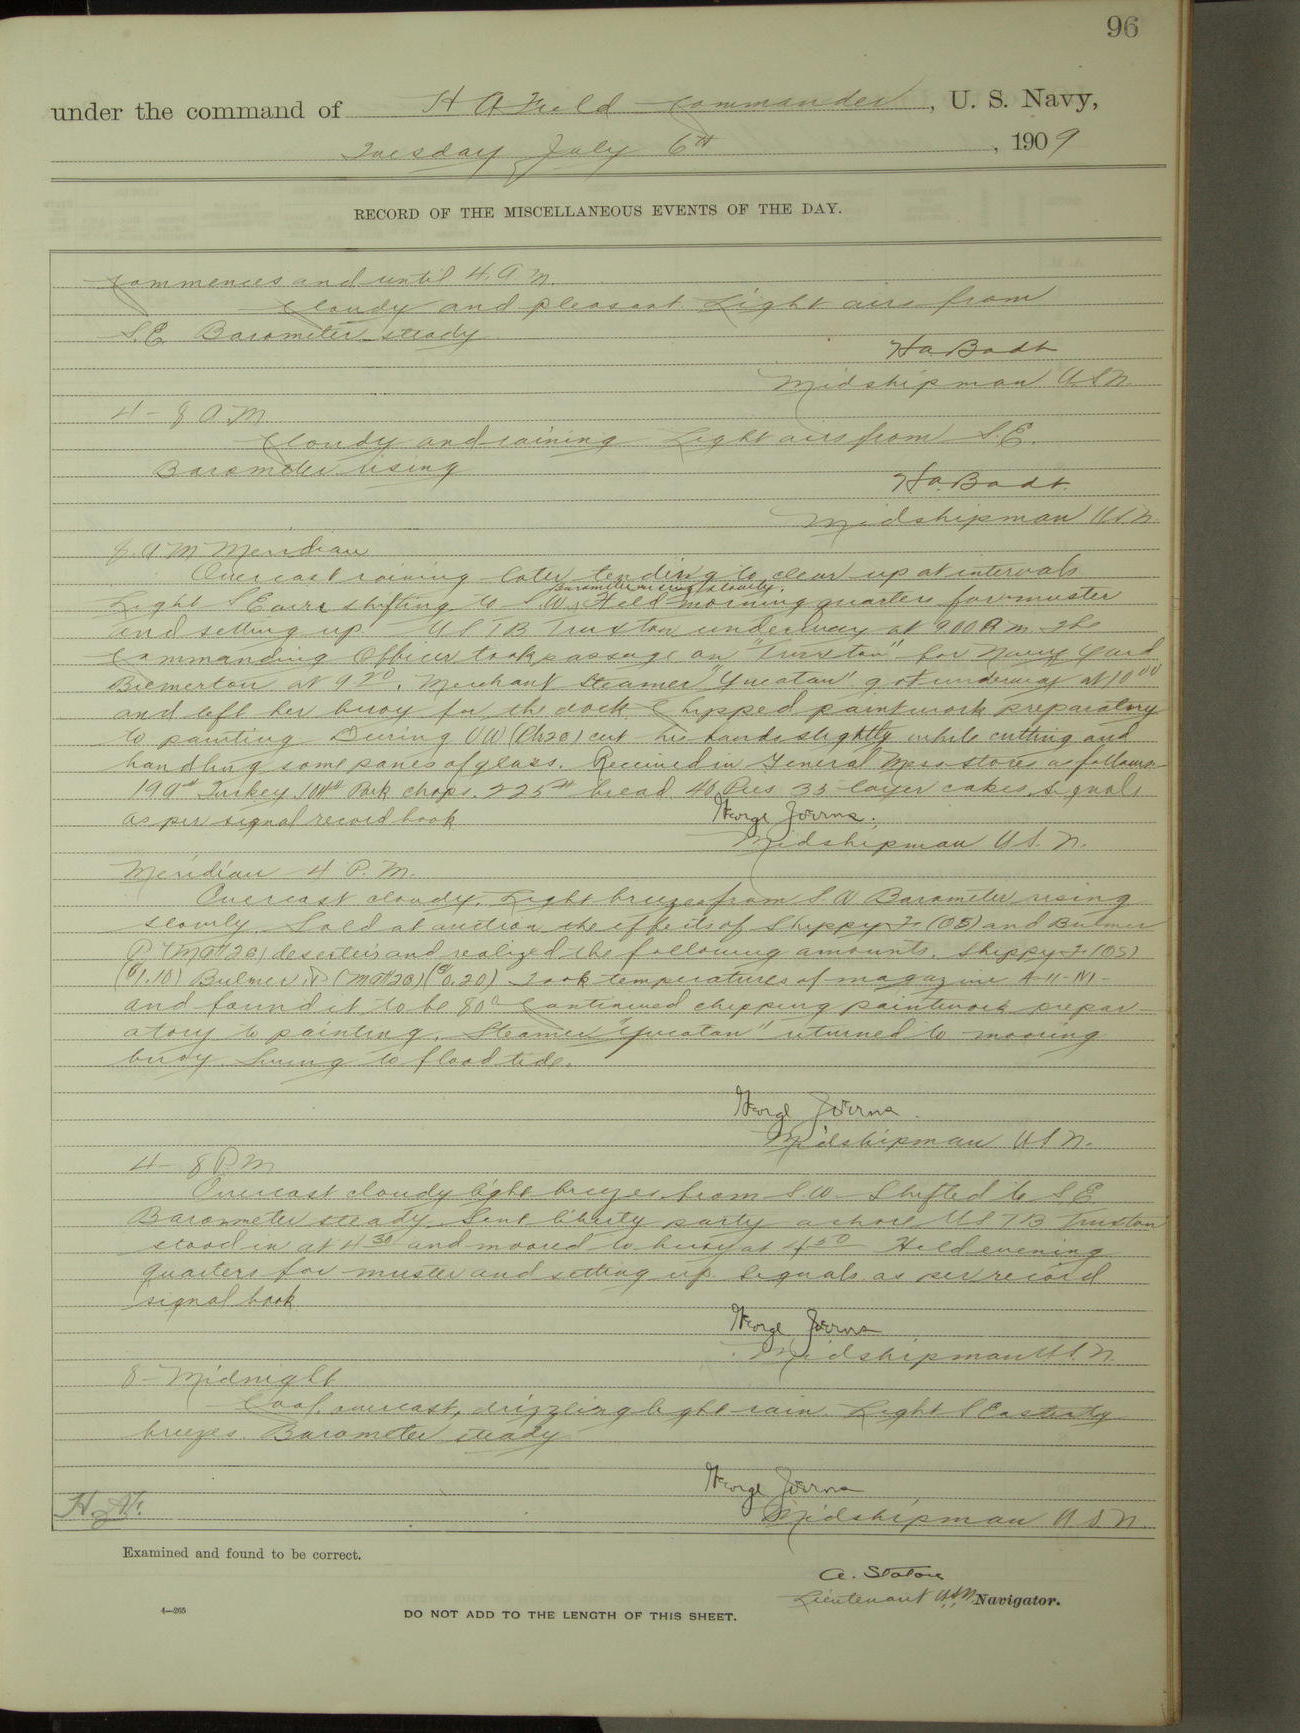 96
under the command of H A Field Commander, U. S. Navy,
Tuesday July 6th, 1909
RECORD OF THE MISCELLANEOUS EVENTS OF THE DAY.
Commences and until 4 A M.
Cloudy and pleasant. Light airs from
S.E. Barometer steady
Ha Badt
Midshipman U.S.N.
4 - 8 A.M
Cloudy and raining Light airs from S.E.
Barometer rising
Ha. Badt.
Midshipman U.S.N.
8. A M Meridian
Overcast raining later tending to clear up at intervals
Barometer rising slowly.
Light S E airs shifting to S.W. Held morning quarters for muster
and setting up. U S T B Truxton underway at 9 00 A m. The
Commanding Officer took passage on "Truxton" for Navy Yard
Bremerton at 9 20. Merchant Steamer "Yucatan" got underway at 10 00
and left her buoy for the dock Chipped paintwork preparatory
to painting During cut his hands slightly while cutting and
handling some panes of glass. Received in General Mess stores as follows
199# Turkey 104# Pork chops. 225# bread 40 Pies 35 layer cakes. Signals
as per signal record book
George Joerns.
Midshipman U.S.N.
Meridian - 4 P. M.
Overcast cloudy. Light breezes from S. W Barometer rising
slowly. Sold at auction the effects of Shippy F. (OS) and Bulmer
P. deserters and realized the following amounts. Shippy F. (OS)
($1.10) Bulmer, P ($0.20) Took temperatures of magazine A-11-M-
and found it to be 80° Continued chipping paintwork prepar-
atory to painting. Steamer "Yucatan" returned to mooring
buoy. Swung to flood tide.
George Joerns.
Midshipman U S N.
4 - 8 P.M
Overcast cloudy light breezes from S.W. Shifted to S.E.
Barometer steady Sent liberty party ashore U S T B Truxton
stood in at 4 30 and moored to buoy at 4 50 Held evening
quarters for muster and setting up. Signals as per record
signal book
George Joerns
Midshipman U.S.N.
8 - Midnight
Cool, overcast, drizzling light rain. Light S Easterly
breezes. Barometer steady
George Joerns
Midshipman U.S.N.
Examined and found to be correct.
A. Staton
Lieutenant U.S.N. Navigator.
4—265
DO NOT ADD TO THE LENGTH OF THIS SHEET.